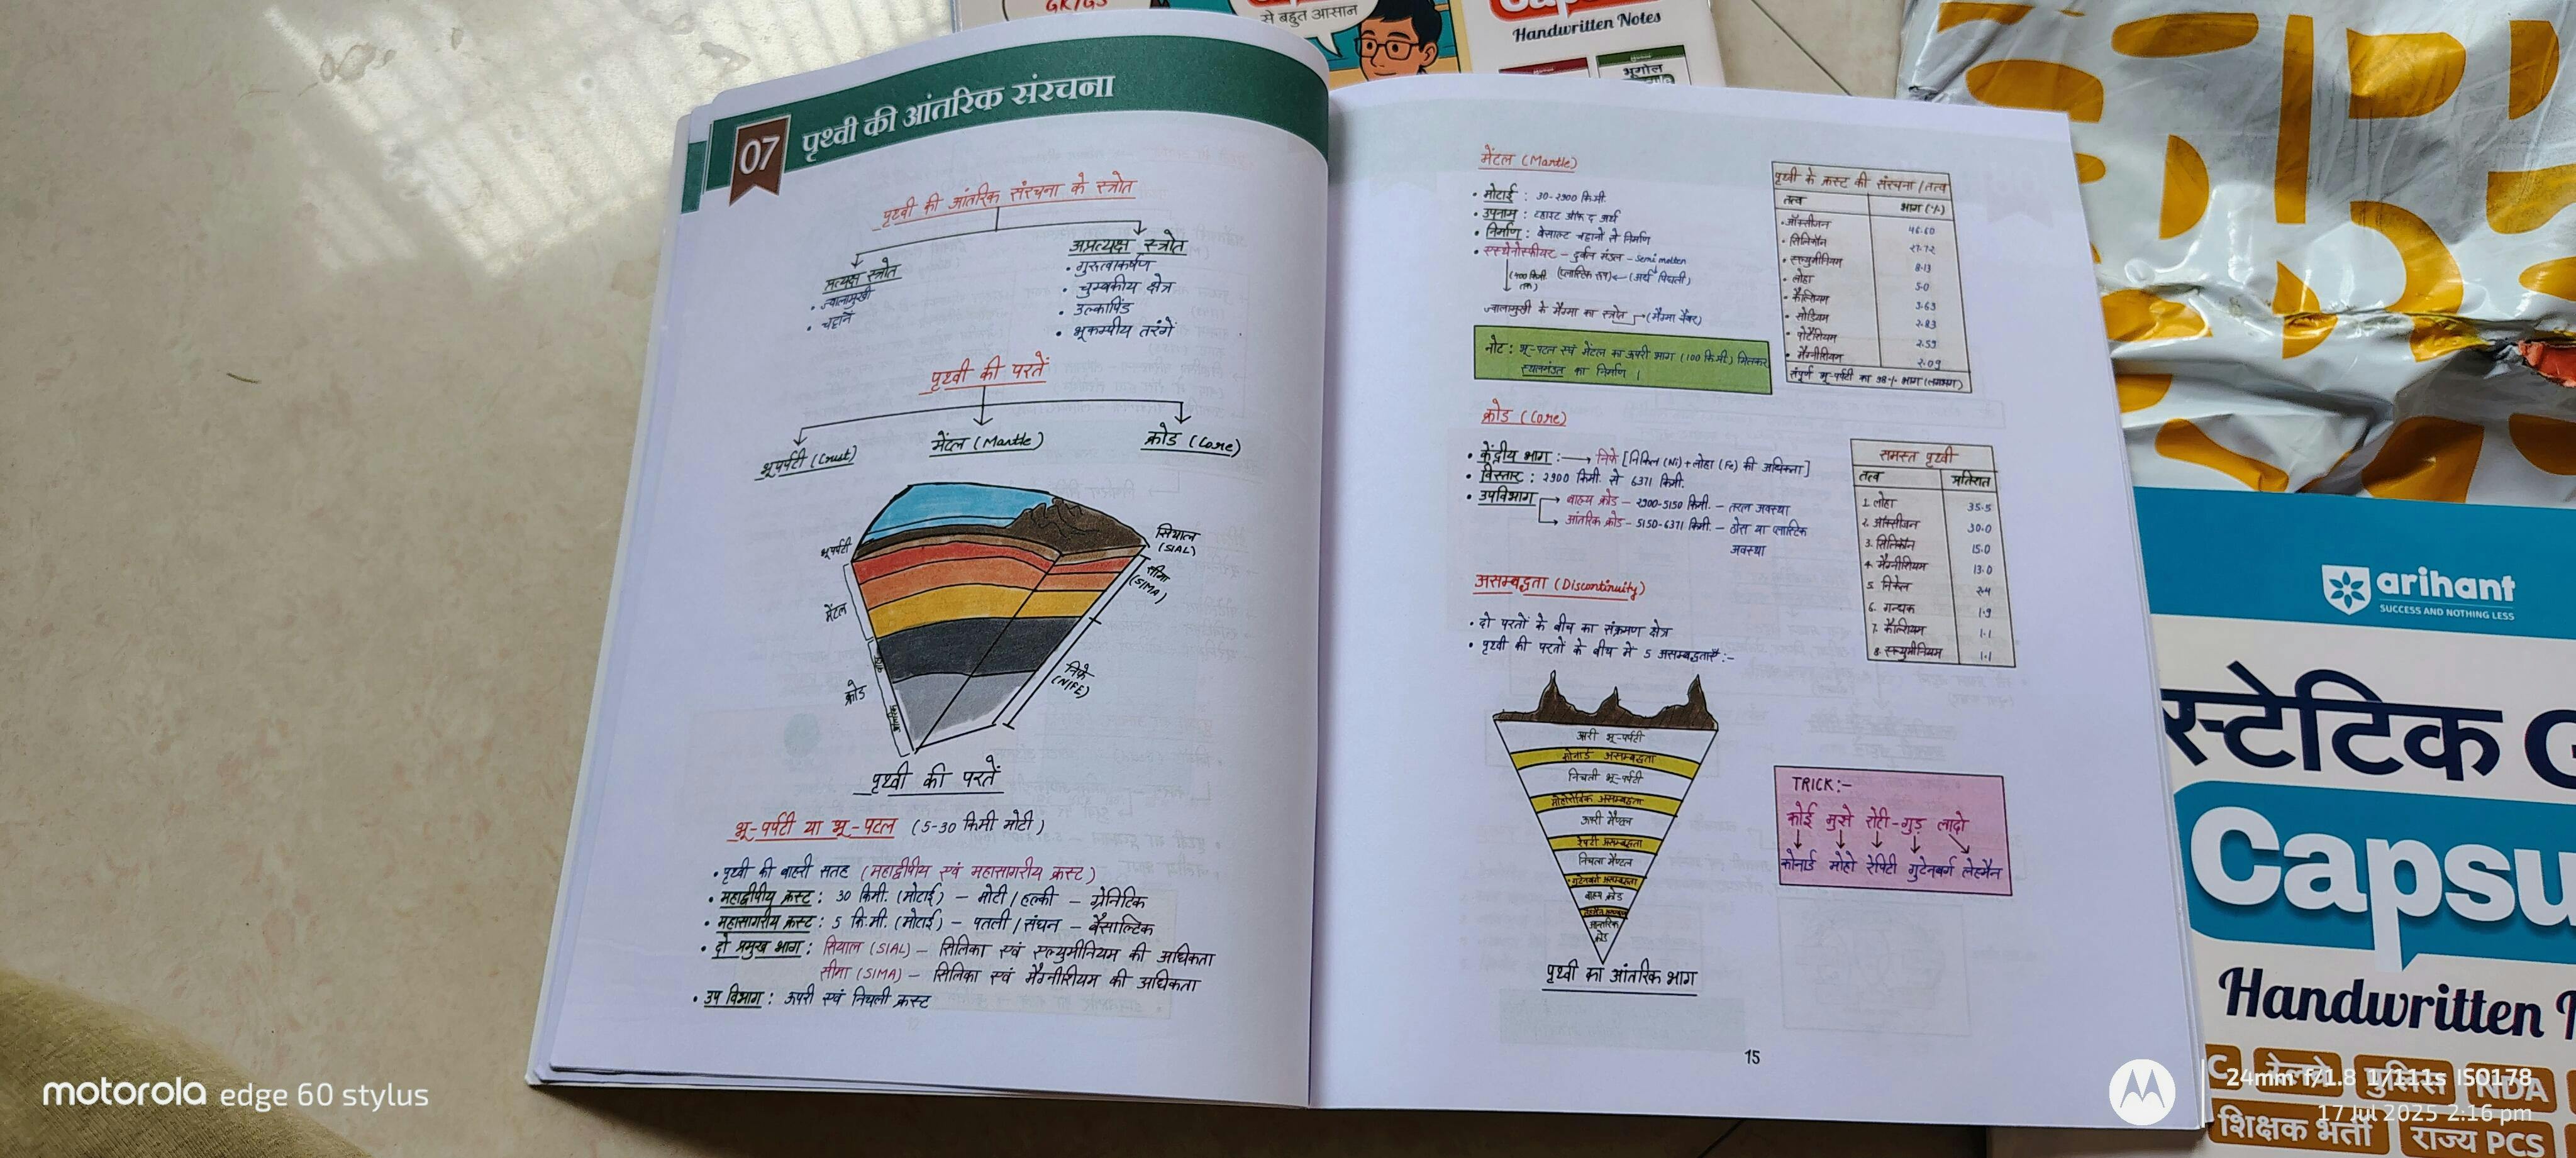 GK/GS
से बहुत आसान
Handwritten Notes
भूगोल
07 पृथ्वी की आंतरिक संरचना
पृथ्वी की आंतरिक संरचना के स्त्रोत
प्रत्यक्ष स्त्रोत
• ज्वालामुखी
• चट्टानें
अप्रत्यक्ष स्त्रोत
• गुरुत्वाकर्षण
• चुम्बकीय क्षेत्र
• उल्कापिंड
• भूकम्पीय तरंगें
पृथ्वी की परतें
भूपर्पटी (Crust)
मेंटल (Mantle)
क्रोड (Core)
भूपर्पटी
मेंटल
क्रोड
आंतरिक
सियाल
(SIAL)
सीमा
(SIMA)
निफे
(NIFE)
पृथ्वी की परतें
भू-पर्पटी या भू-पटल (5-30 किमी मोटी)
• पृथ्वी की बाहरी सतह (महाद्वीपीय एवं महासागरीय क्रस्ट)
• महाद्वीपीय क्रस्ट : 30 किमी. (मोटाई) – मोटी / हल्की – ग्रेनिटिक
• महासागरीय क्रस्ट : 5 कि.मी. (मोटाई) – पतली / संघन – बैसाल्टिक
• दो प्रमुख भाग : सियाल (SIAL) – सिलिका एवं एल्युमीनियम की अधिकता
सीमा (SIMA) – सिलिका एवं मैग्नीशियम की अधिकता
• उप विभाग : ऊपरी एवं निचली क्रस्ट
मेंटल (Mantle)
• मोटाई : 30-2900 किमी.
• उपनाम : व्हाइट ऑफ द अर्थ
• निर्माण : बेसाल्ट चट्टानों से निर्माण
• एस्थेनोस्फीयर – दुर्बल मंडल – Semi molten
(400 किमी. तक) (प्लास्टिक रूप) ← (अर्ध पिघली)
ज्वालामुखी के मैग्मा का स्त्रोत → (मैग्मा चैंबर)
नोट : भू-पटल एवं मेंटल का ऊपरी भाग (100 कि.मी.) मिलकर
स्थलमंडल का निर्माण ।
पृथ्वी के क्रस्ट की संरचना / तत्व
तत्व भाग (%)
• ऑक्सीजन 46.60
• सिलिकॉन 27.72
• एल्युमीनियम 8.13
• लोहा 5.0
• कैल्शियम 3.63
• सोडियम 2.83
• पोटैशियम 2.59
• मैग्नीशियम 2.09
संपूर्ण भू-पर्पटी का 98% भाग (लगभग)
क्रोड (Core)
• केंद्रीय भाग : → निफे [निकिल (Ni) + लोहा (Fe) की अधिकता]
• विस्तार : 2900 किमी. से 6371 किमी.
• उपविभाग → बाह्य क्रोड – 2900-5150 किमी. – तरल अवस्था
→ आंतरिक क्रोड – 5150-6371 किमी. – ठोस या प्लास्टिक
अवस्था
समस्त पृथ्वी
तत्व प्रतिशत
1. लोहा 35.5
2. ऑक्सीजन 30.0
3. सिलिकॉन 15.0
4. मैग्नीशियम 13.0
5. निकेल 2.4
6. गन्धक 1.9
7. कैल्शियम 1.1
8. एल्युमीनियम 1.1
असम्बद्धता (Discontinuity)
• दो परतों के बीच का संक्रमण क्षेत्र
• पृथ्वी की परतों के बीच में 5 असम्बद्धताएँ :-
ऊपरी भू-पर्पटी
कोनार्ड असम्बद्धता
निचली भू-पर्पटी
मोहोरोविक असम्बद्धता
ऊपरी मैण्टल
रेपटी असम्बद्धता
निचला मैण्टल
गुटेनबर्ग असम्बद्धता
बाह्य क्रोड
आन्तरिक
क्रोड
पृथ्वी का आंतरिक भाग
TRICK:-
कोई मुसे रोटी-गुड़ लादो
कोनार्ड मोहो रेपिटी गुटेनबर्ग लेहमैन
15
arihant
SUCCESS AND NOTHING LESS
स्टेटिक G
Capsu
Handwritten
रेलवे पुलिस NDA
शिक्षक भर्ती राज्य PCS
motorola edge 60 stylus
24mm f/1.8 1/111s ISO178
17 Jul 2025 2:16 pm